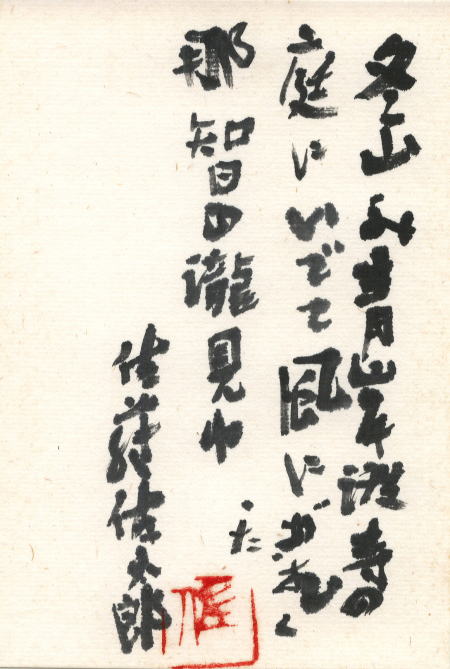 冬山の青岸渡寺の
庭にいでて風にかたむく
那智の瀧見ゆ
佐藤佐太郎